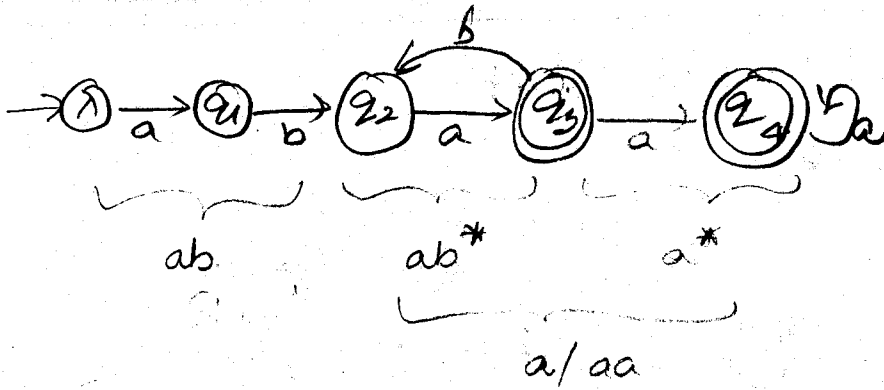 b
λ a q1 b q2 a q3 a q4 a
ab ab* a*
a/aa